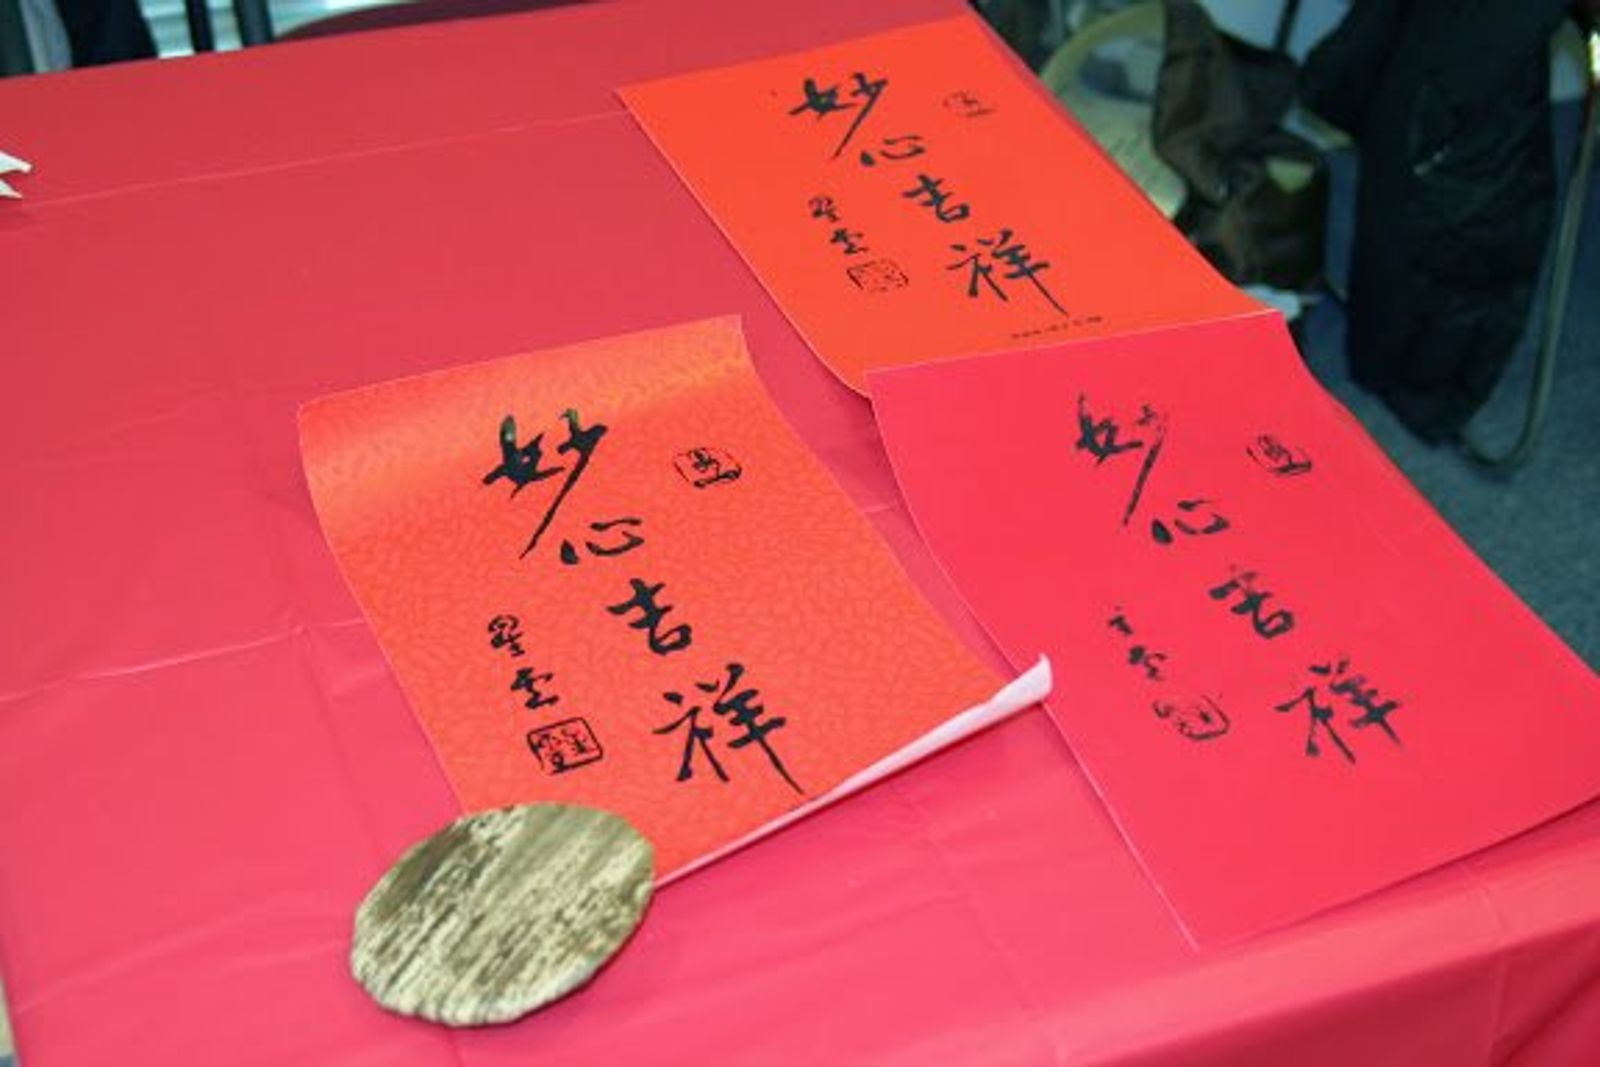 妙心吉祥
星雲
妙心吉祥
星雲
妙心吉祥
星雲